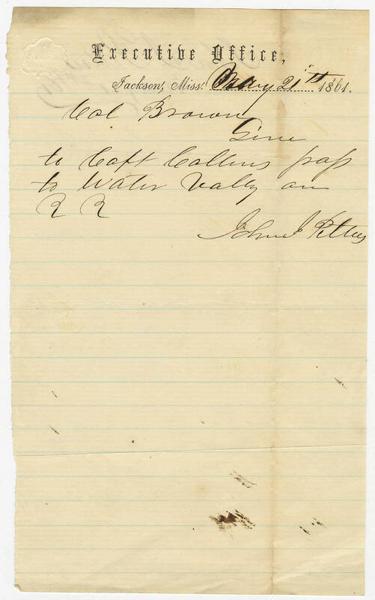 Executive Office,
Jackson, Miss. May 21th 1861.
Col Brown
Give
to Capt Collins pass
to Water Vally on
R R
John J Pettus